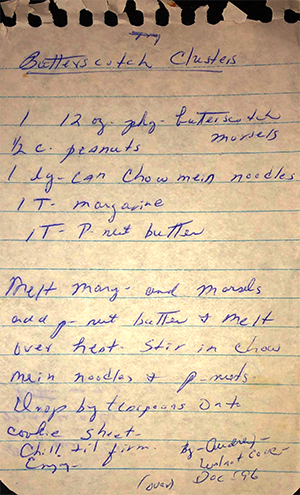 Butterscotch Clusters
1 12 oz. pkg. butterscotch
morsels
1/2 c. peanuts
1 lg. can chow mein noodles
1 T- margarine
1 T- P-nut butter
Melt marg- and morsels
add p-nut butter & melt
over heat. Stir in chow
mein noodles & p-nuts.
Drop by teaspoons onto
cookie sheet.
Chill til firm.
Enjoy-
By- Audrey-
Walnut Cove-
Dec '96
(over)